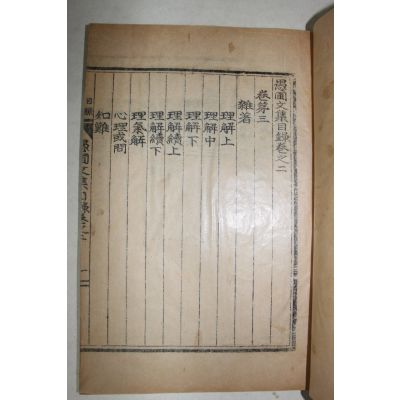 愚圃文集目錄卷之二
卷第三
雜著
理解上
理解中
理解下
理解續上
理解續下
理氣解
心理或問
知難
目錄
愚圃文集目錄卷之二